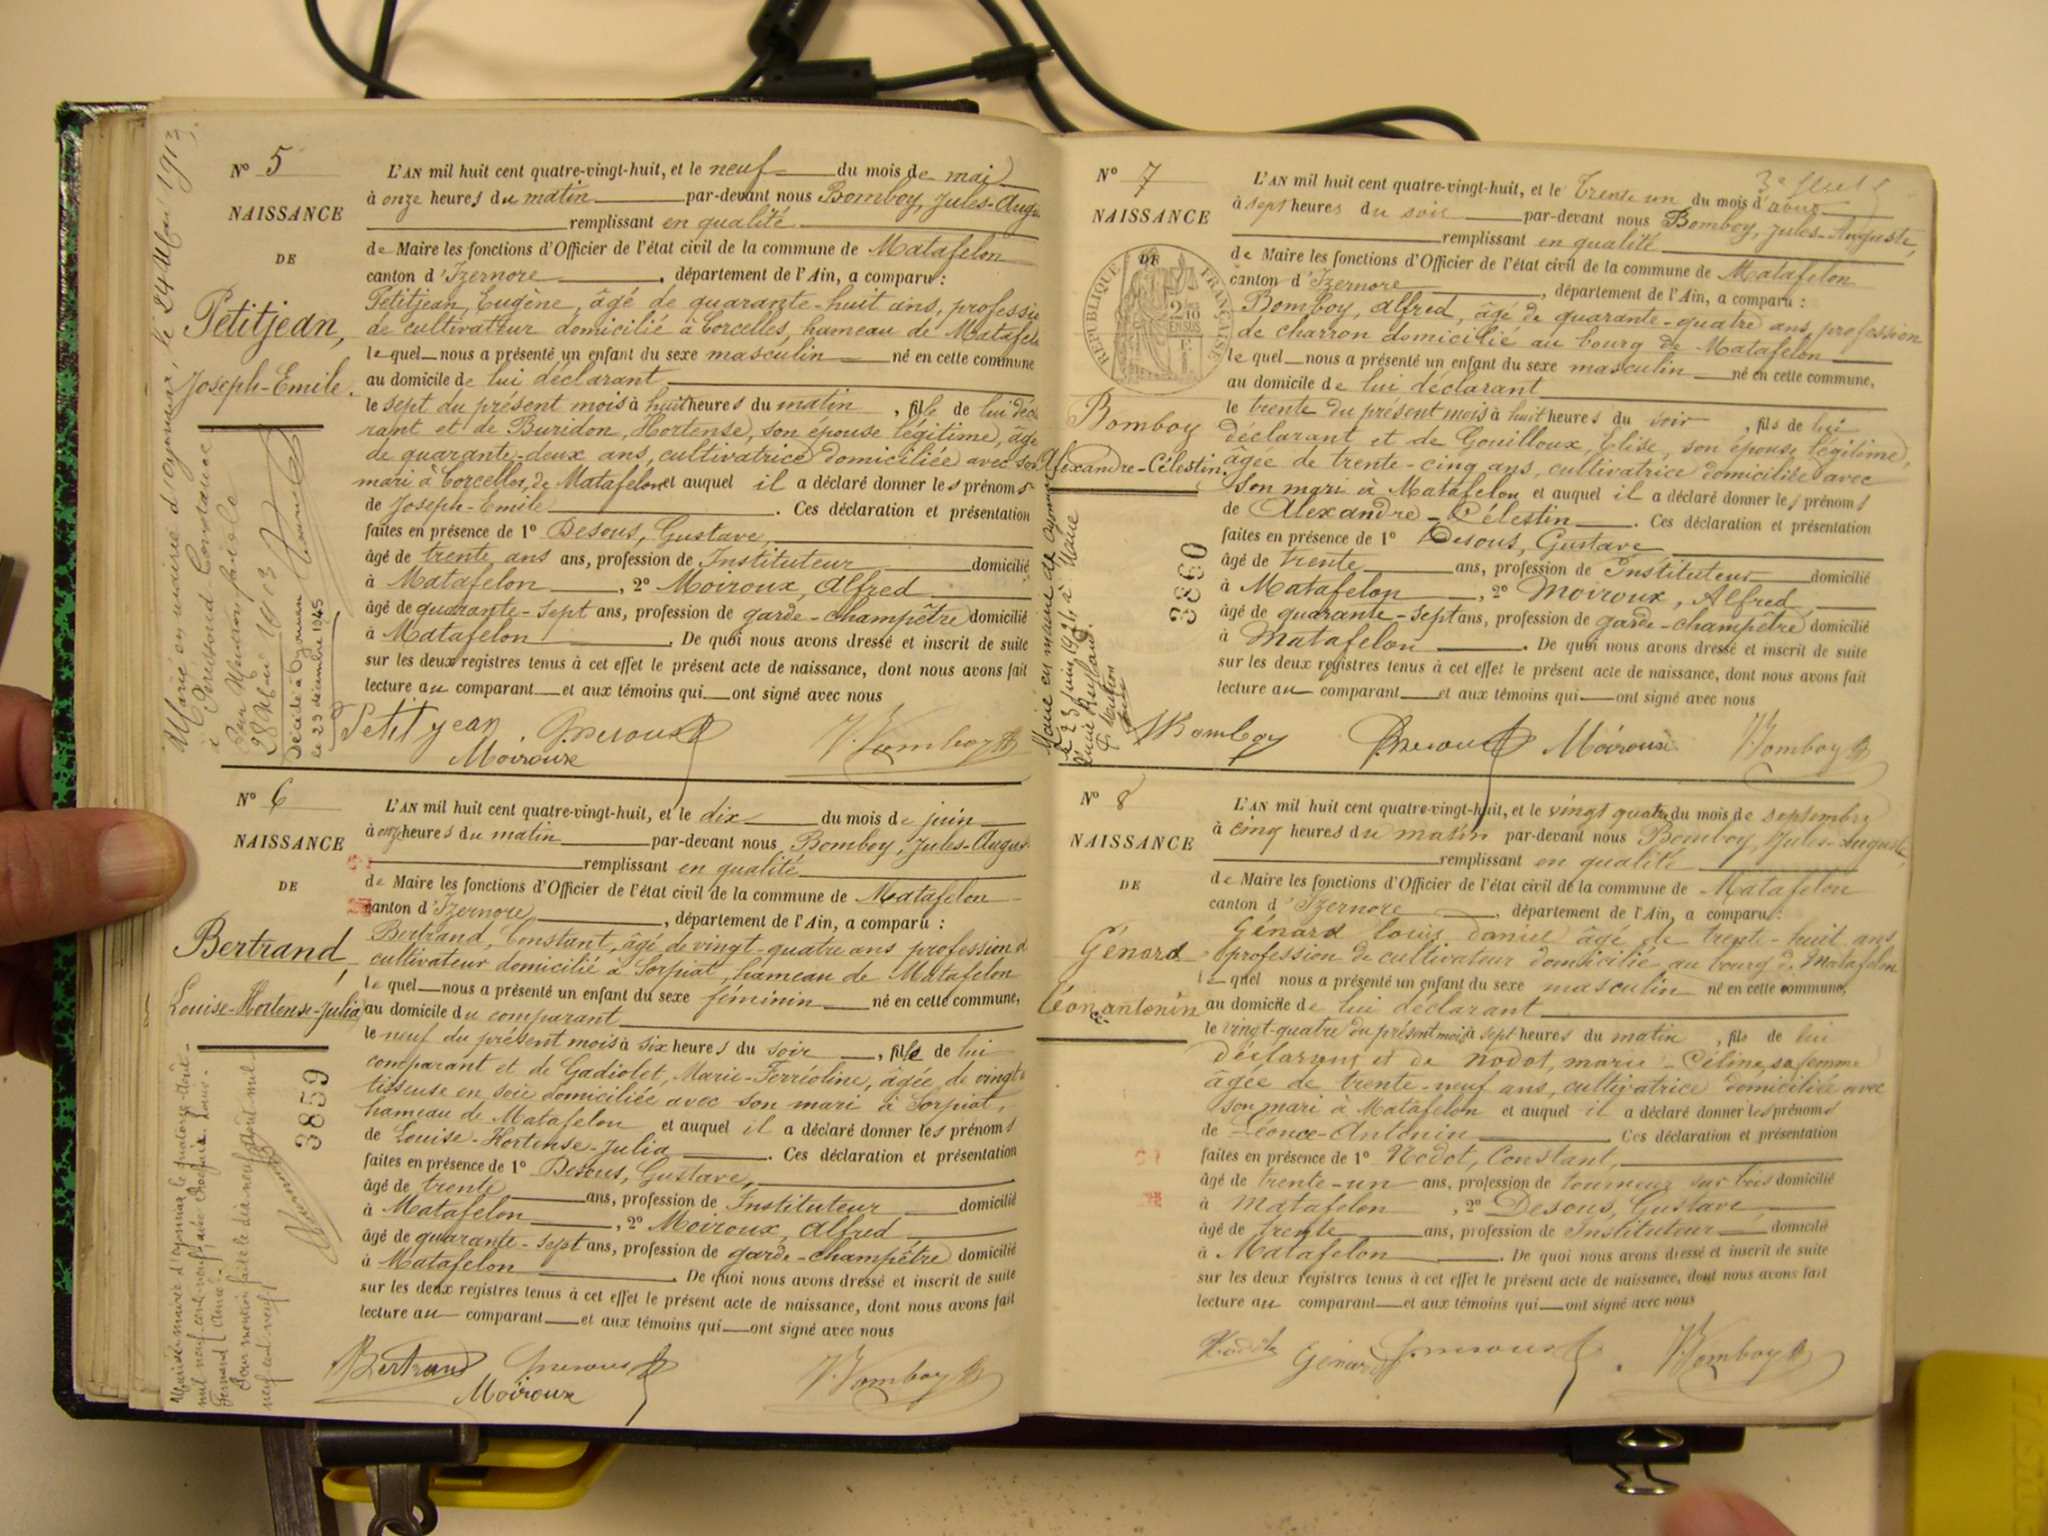 N° 5
NAISSANCE
DE
Petitjean,
Joseph-Emile.
L'AN mil huit cent quatre-vingt-huit, et le neuf du mois de mai
à onze heures du matin par-devant nous Bomboy, Jules-Augu
remplissant en qualité
de Maire les fonctions d'Officier de l'état civil de la commune de Matafelon
canton d'Izernore, département de l'Ain, a comparu :
Petitjean, Eugène, âgé de quarante-huit ans, professi
de cultivateur domicilié à Corcelles, hameau de Matafel
le quel nous a présenté un enfant du sexe masculin né en cette commune
au domicile de lui déclarant
le sept du présent mois à huit heures du matin, fils de lui décl
rant et de Buridon, Hortense, son épouse légitime, âgé
de quarante-deux ans, cultivatrice domiciliée avec son
mari à Corcelles, de Matafelon et auquel il a déclaré donner les prénoms
de Joseph-Emile. Ces déclaration et présentation
faites en présence de 1° Desous, Gustave,
âgé de trente ans ans, profession de Instituteur domicilié
à Matafelon, 2° Moiroux, Alfred
âgé de quarante-sept ans, profession de garde-champêtre domicilié
à Matafelon. De quoi nous avons dressé et inscrit de suite
sur les deux registres tenus à cet effet le présent acte de naissance, dont nous avons fait
lecture au comparant et aux témoins qui ont signé avec nous
Petitjean G. Desous J. Bomboy
Moiroux
Marié en mairie d'Oyonnax, le 24 Mai 1913,
à Constance
28 1913
Décédé à Oyonnax
le 29 décembre 1945
N° 6
NAISSANCE
DE
Bertrand,
Louise-Hortense-Julia
L'AN mil huit cent quatre-vingt-huit, et le dix du mois de juin
à onze heures du matin par-devant nous Bomboy, Jules-Augus
remplissant en qualité
de Maire les fonctions d'Officier de l'état civil de la commune de Matafelon
canton d'Izernore, département de l'Ain, a comparu :
Bertrand, Constant, âgé de vingt-quatre ans profession d
cultivateur domicilié à Sorpiat, hameau de Matafelon
le quel nous a présenté un enfant du sexe féminin né en cette commune,
au domicile du comparant
le neuf du présent mois à six heures du soir, fille de lui
comparant et de Gadiolet, Marie-Ferréoline, âgée de vingt
tisseuse en soie domiciliée avec son mari à Sorpiat,
hameau de Matafelon et auquel il a déclaré donner les prénoms
de Louise-Hortense-Julia. Ces déclaration et présentation
faites en présence de 1° Desous, Gustave,
âgé de trente ans, profession de Instituteur domicilié
à Matafelon, 2° Moiroux, Alfred
âgé de quarante-sept ans, profession de garde-champêtre domicilié
à Matafelon. De quoi nous avons dressé et inscrit de suite
sur les deux registres tenus à cet effet le présent acte de naissance, dont nous avons fait
lecture au comparant et aux témoins qui ont signé avec nous
Bertrand G. Desous J. Bomboy
Moiroux
3859
N° 7
NAISSANCE
DE
RÉPUBLIQUE FRANÇAISE
2/10 EN SUS
Bomboy
Alexandre-Célestin.
L'AN mil huit cent quatre-vingt-huit, et le trente un du mois d'août
à sept heures du soir par-devant nous Bomboy, Jules-Auguste,
remplissant en qualité
de Maire les fonctions d'Officier de l'état civil de la commune de Matafelon
canton d'Izernore, département de l'Ain, a comparu :
Bomboy, Alfred, âgé de quarante-quatre ans, profession
de charron domicilié au bourg de Matafelon
le quel nous a présenté un enfant du sexe masculin né en cette commune,
au domicile de lui déclarant
le trente du présent mois à huit heures du soir, fils de lui
déclarant et de Gouilloux, Elise, son épouse légitime,
âgée de trente-cinq ans, cultivatrice domiciliée avec
son mari à Matafelon et auquel il a déclaré donner les prénoms
de Alexandre-Célestin. Ces déclaration et présentation
faites en présence de 1° Desous, Gustave
âgé de trente ans, profession de Instituteur domicilié
à Matafelon, 2° Moiroux, Alfred
âgé de quarante-sept ans, profession de garde-champêtre domicilié
à Matafelon. De quoi nous avons dressé et inscrit de suite
sur les deux registres tenus à cet effet le présent acte de naissance, dont nous avons fait
lecture au comparant et aux témoins qui ont signé avec nous
Bomboy G. Desous Moiroux J. Bomboy
3860
N° 8
NAISSANCE
DE
Génard
Léonce antonin
L'AN mil huit cent quatre-vingt-huit, et le vingt quatre du mois de septembre
à cinq heures du matin par-devant nous Bomboy, Jules-Auguste,
remplissant en qualité
de Maire les fonctions d'Officier de l'état civil de la commune de Matafelon
canton d'Izernore, département de l'Ain, a comparu :
Génard louis daniel âgé de trente-huit ans
profession de cultivateur domicilié au bourg de Matafelon
le quel nous a présenté un enfant du sexe masculin né en cette commune,
au domicile de lui déclarant
le vingt-quatre du présent mois à sept heures du matin, fils de lui
déclarant et de Nodot, marie-Céline sa femme
âgée de trente-neuf ans, cultivatrice domiciliée avec
son mari à Matafelon et auquel il a déclaré donner les prénoms
de Léonce-Antonin. Ces déclaration et présentation
faites en présence de 1° Nodot, Constant,
âgé de trente-un ans, profession de tourneur sur bois domicilié
à Matafelon, 2° Desous, Gustave
âgé de trente ans, profession de Instituteur domicilié
à Matafelon. De quoi nous avons dressé et inscrit de suite
sur les deux registres tenus à cet effet le présent acte de naissance, dont nous avons fait
lecture au comparant et aux témoins qui ont signé avec nous
Nodot Génard G. Desous J. Bomboy